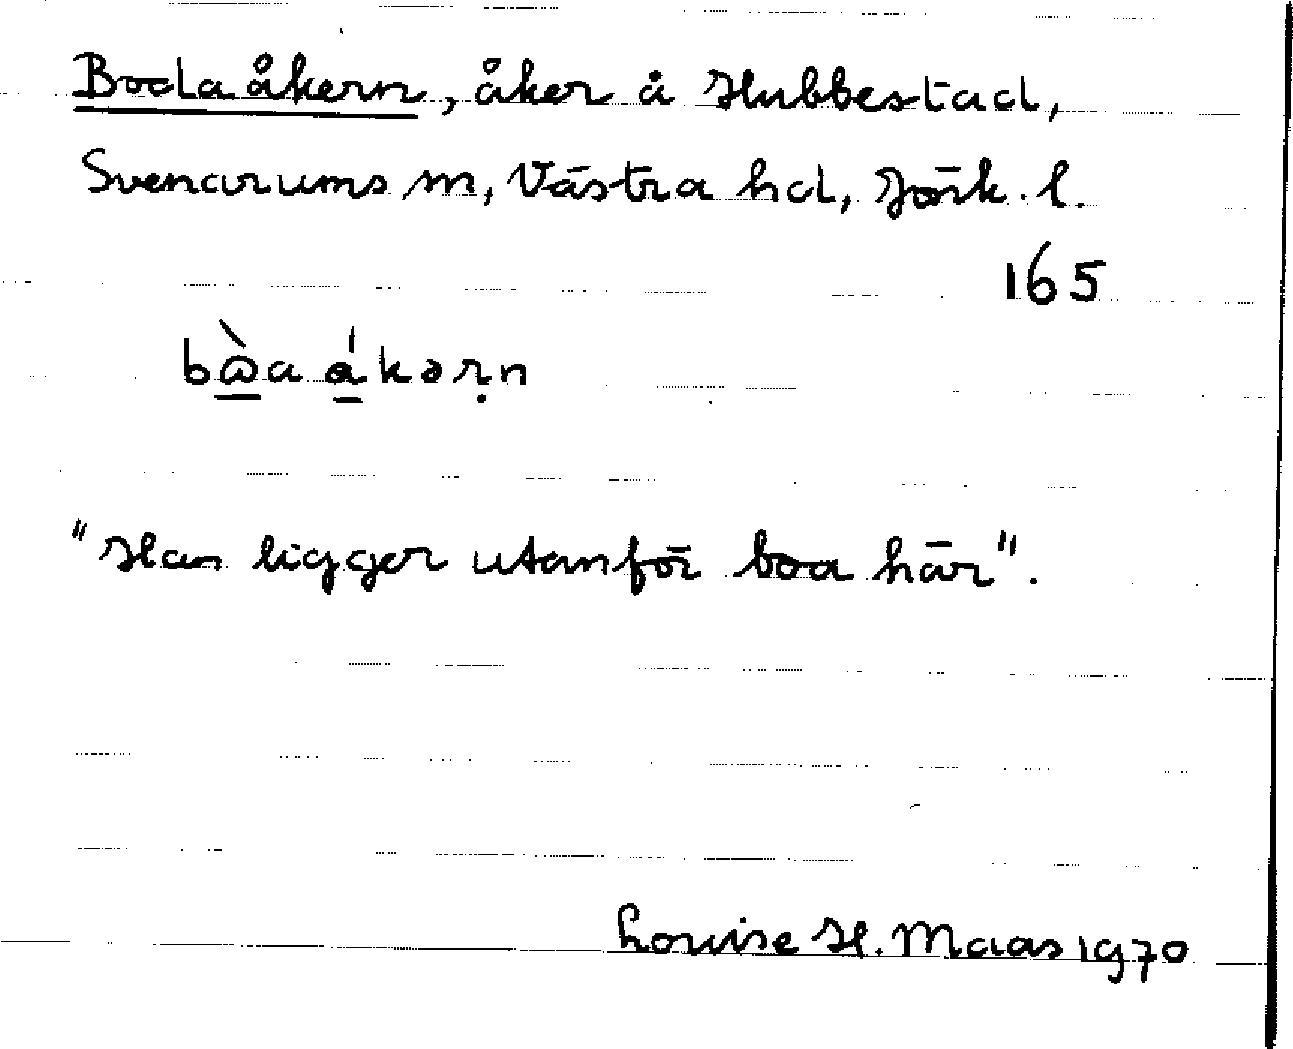 Boda åkern, åker å Hubbestad,
Svenarums sn, Västra hd, Jönk. l.
165
bὼa ákəṛn
"Han ligger utanför boa här".
Louise H. Maas 1970